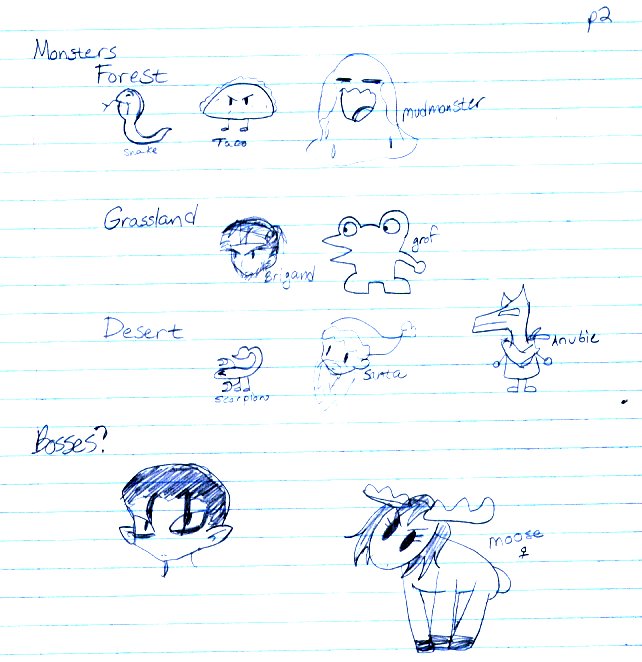 p2
Monsters
Forest
Snake
Taco
mudmonster
Grassland
Brigand
grof
Desert
Scorpions
Sirta
Anubie
Bosses?
moose
♀